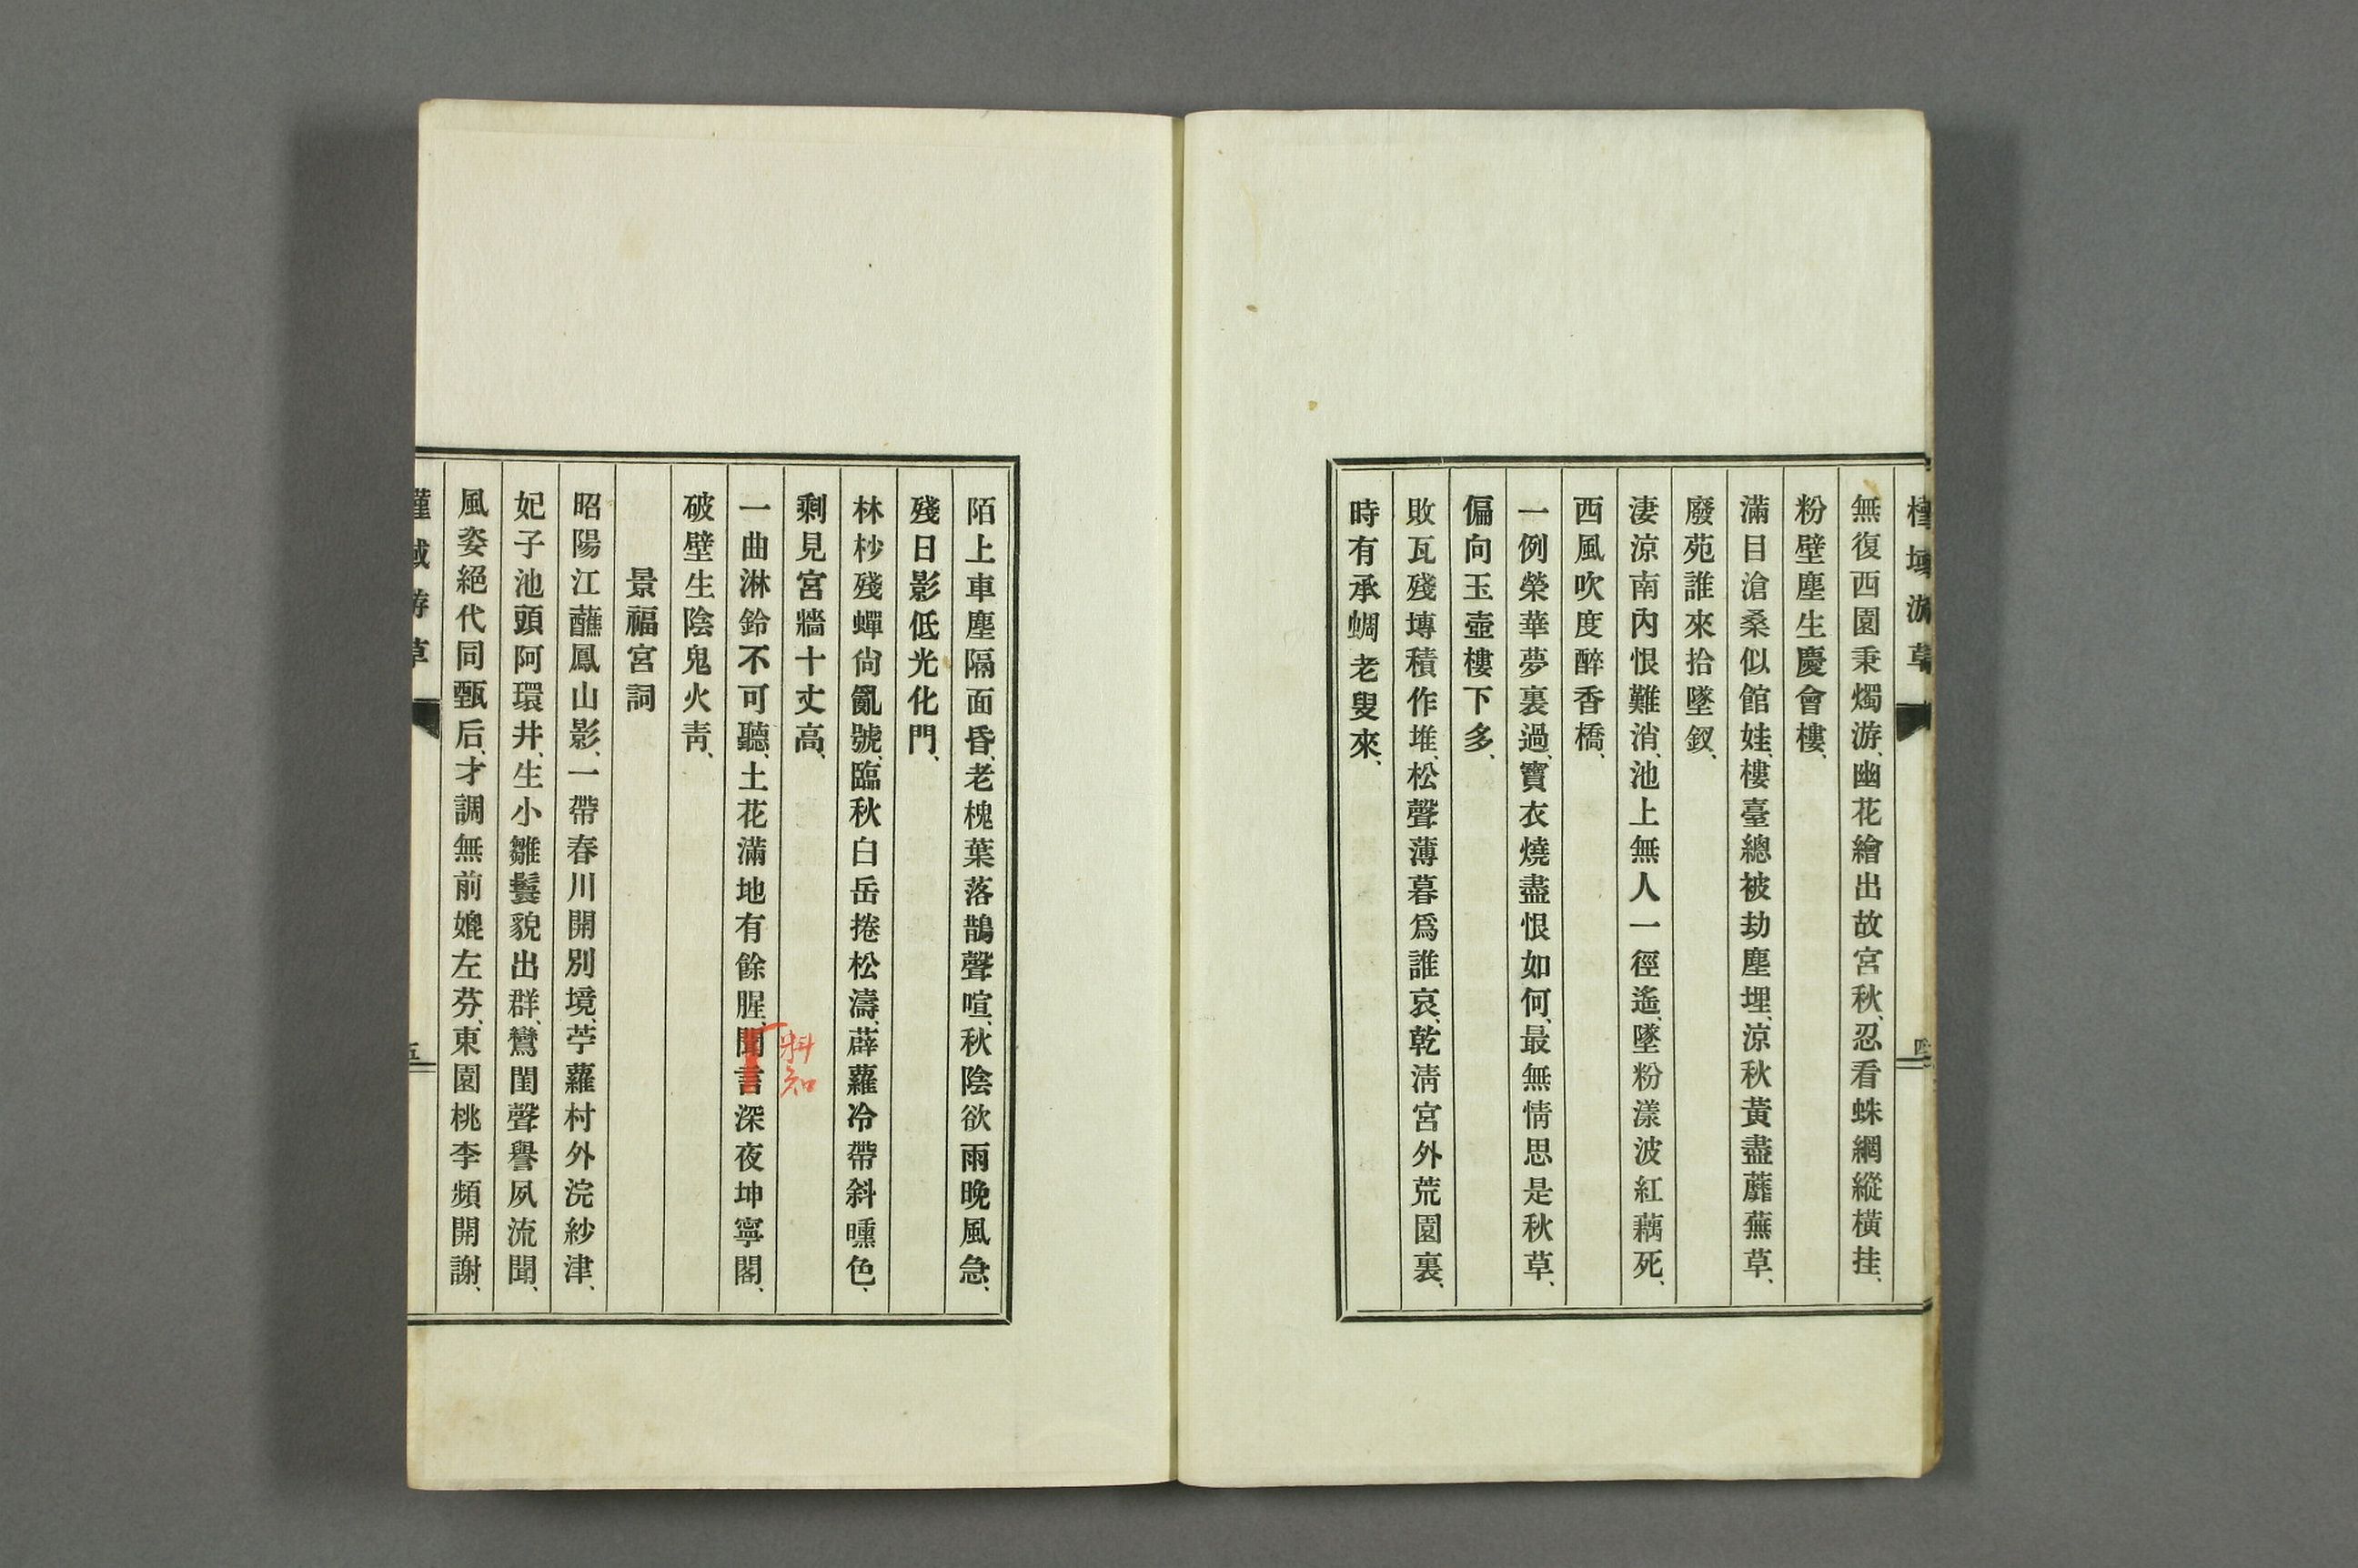 槿域游草
四
無復西園秉燭游、幽花繪出故宮秋、忍看蛛網縱橫挂、
粉壁塵生慶會樓、
滿目滄桑似館娃、樓臺總被劫塵埋、涼秋黃盡蘼蕪草、
廢苑誰來拾墜釵、
淒涼南內恨難消、池上無人一徑遙、墜粉漾波紅藕死、
西風吹度醉香橋、
一例榮華夢裏過、寶衣燒盡恨如何、最無情思是秋草、
偏向玉壺樓下多、
敗瓦殘塼積作堆、松聲薄暮爲誰哀、乾淸宮外荒園裏、
時有承蜩老叟來、
陌上車塵隔面昏、老槐葉落鵲聲喧、秋陰欲雨晚風急、
殘日影低光化門、
林杪殘蟬尙亂號、臨秋白岳捲松濤、薜蘿冷帶斜曛色、
剩見宮牆十丈高、
一曲淋鈴不可聽、土花滿地有餘腥、聞言深夜坤寧閣、
料知
破壁生陰鬼火靑、
景福宮詞
昭陽江蘸鳳山影、一帶春川開別境、苧蘿村外浣紗津、
妃子池頭阿環井、生小雛鬟貌出群、鸞閨聲譽夙流聞、
風姿絕代同甄后、才調無前媲左芬、東園桃李頻開謝、
槿域游草
五